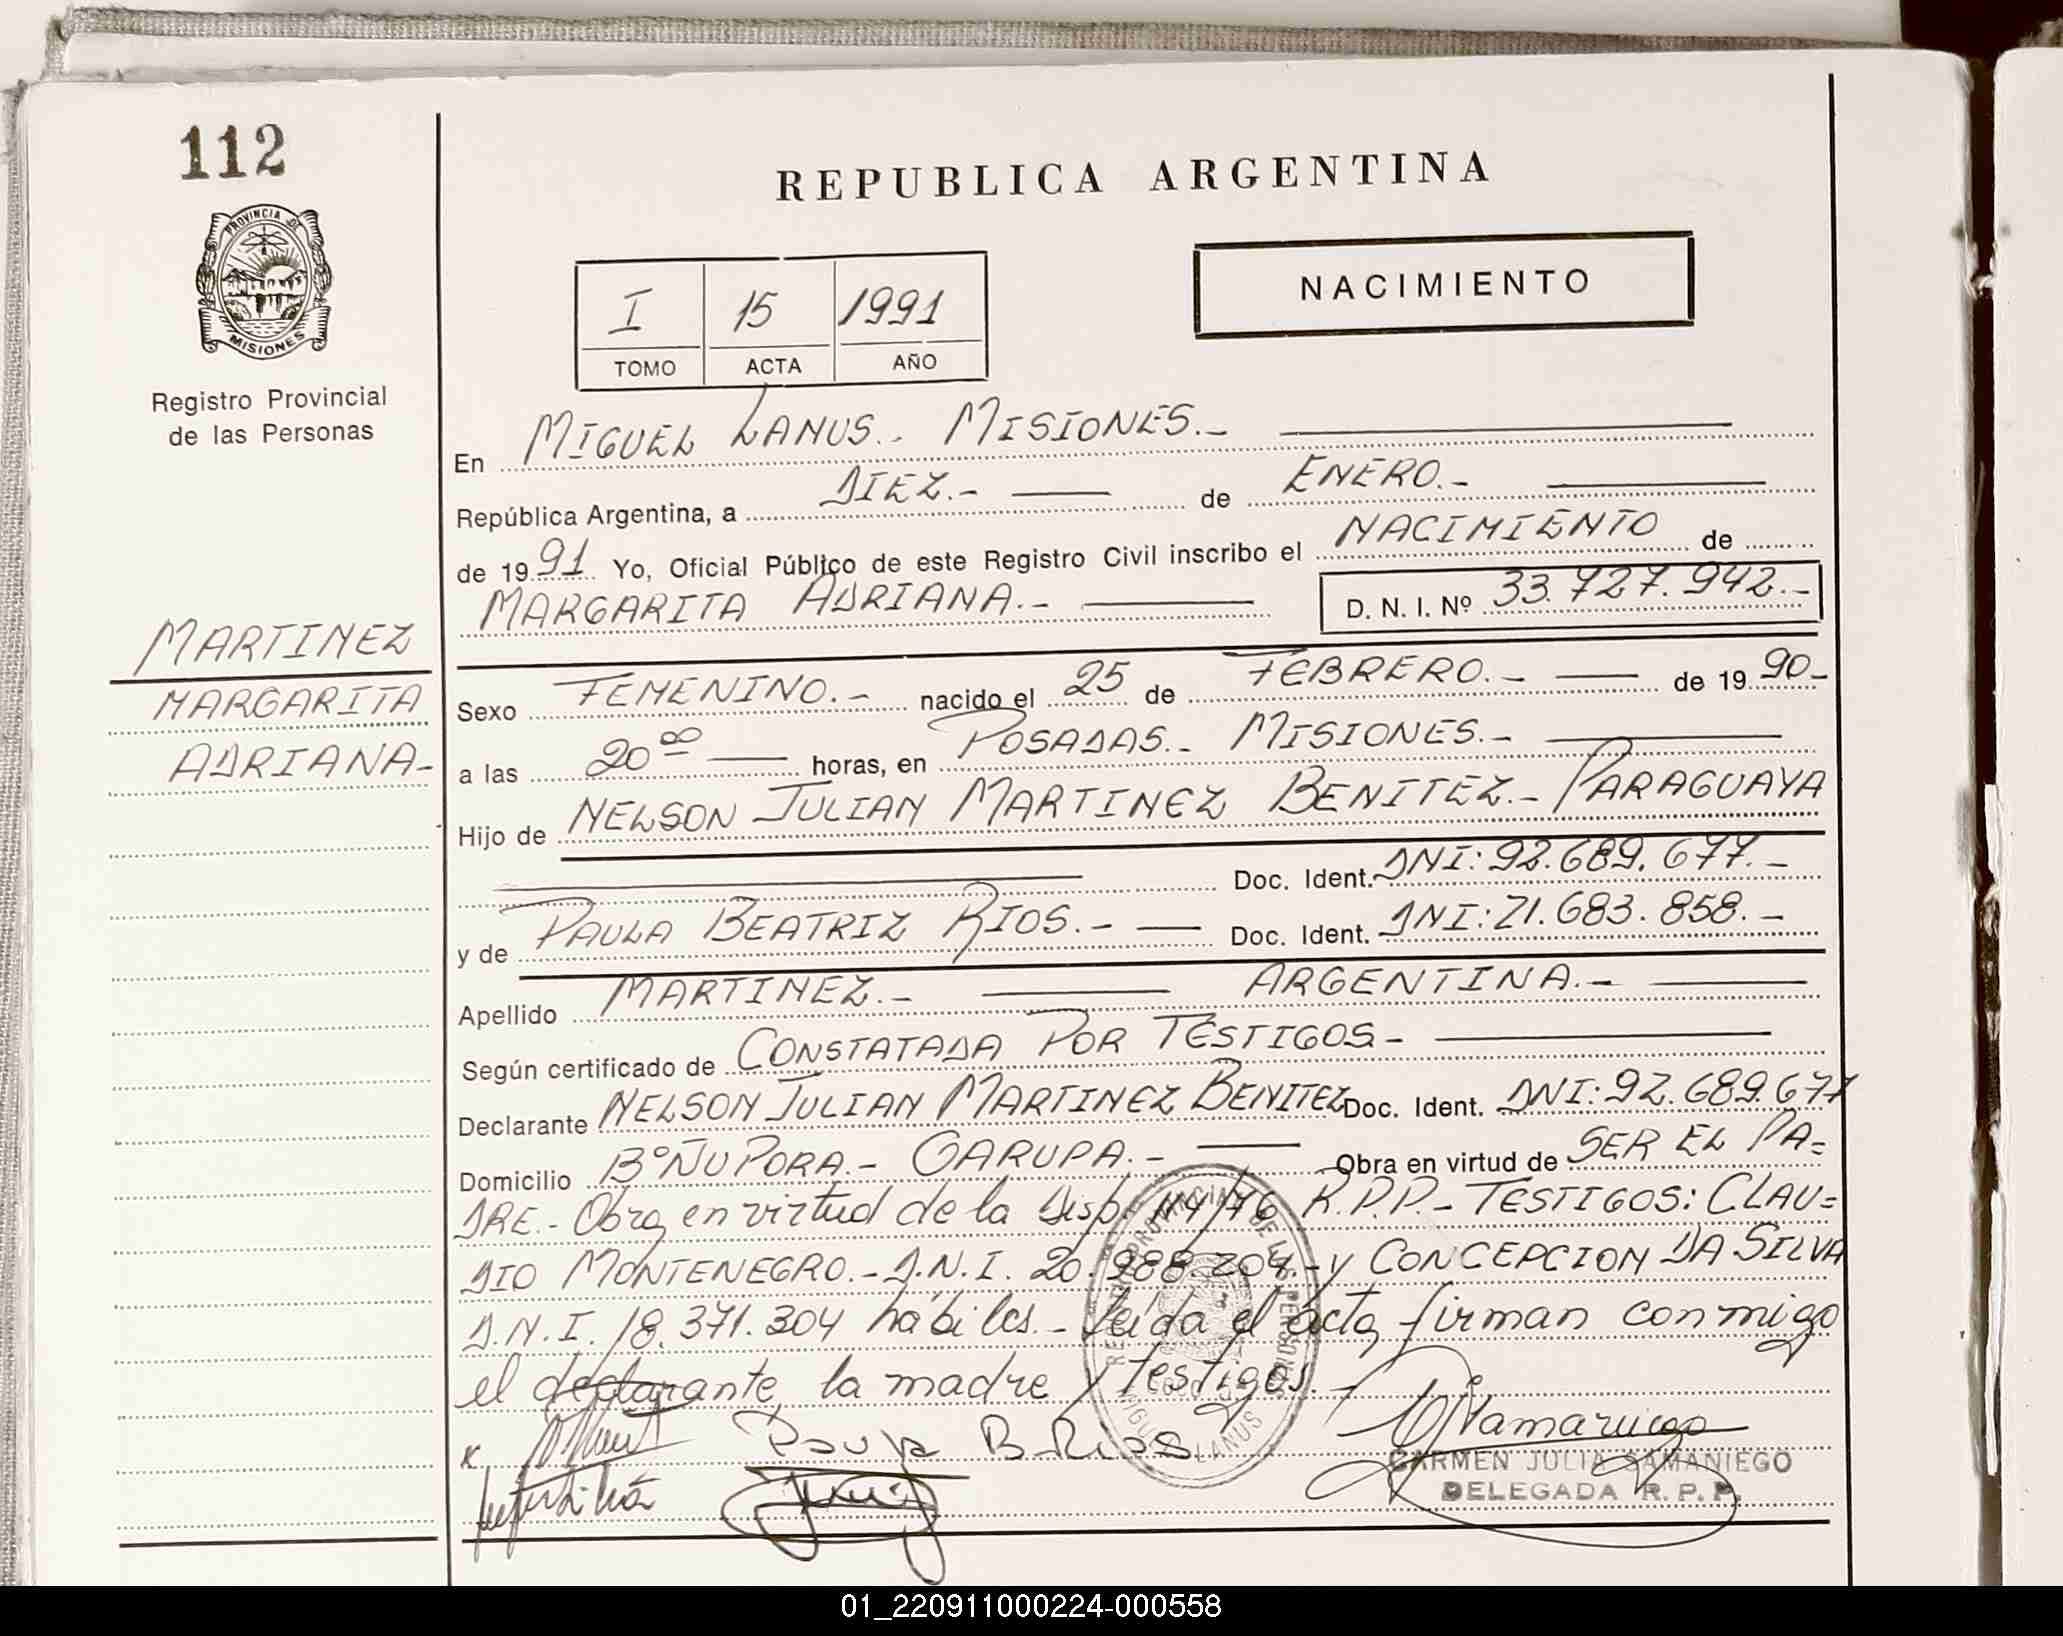 112
REPUBLICA ARGENTINA
PROVINCIA DE
MISIONES
Registro Provincial
de las Personas
I 15 1991
TOMO ACTA AÑO
NACIMIENTO
En MIGUEL LANUS.- MISIONES.-
República Argentina, a DIEZ.- de ENERO.-
de 1991 Yo, Oficial Público de este Registro Civil inscribo el NACIMIENTO de
MARGARITA ADRIANA.- D. N. I. Nº 33.727.942.-
MARTINEZ
MARGARITA
ADRIANA-
Sexo FEMENINO.- nacido el 25 de FEBRERO.- de 1990-
a las 20 00 horas, en POSADAS.- MISIONES.-
Hijo de NELSON JULIAN MARTINEZ BENITEZ.- PARAGUAYA
Doc. Ident. DNI: 92.689.677.-
y de PAULA BEATRIZ RIOS.- Doc. Ident. DNI: 21.683.858.-
Apellido MARTINEZ.- ARGENTINA.-
Según certificado de CONSTATADA POR TESTIGOS-
Declarante NELSON JULIAN MARTINEZ BENITEZ Doc. Ident. DNI: 92.689.677
Domicilio Bº ÑU PORA.- GARUPA.- Obra en virtud de SER EL PA=
DRE.- Obra en virtud de la Disp. 114/76 R.P.P.- TESTIGOS: CLAU=
DIO MONTENEGRO.- D.N.I. 20.988.204.- y CONCEPCION DA SILVA
D.N.I. 18.371.304 hábiles.- Leída el acta, firman conmigo
el declarante la madre y testigos
Paula B. Rios
CARMEN JULIA SAMANIEGO
DELEGADA R.P.P.
01_220911000224-000558